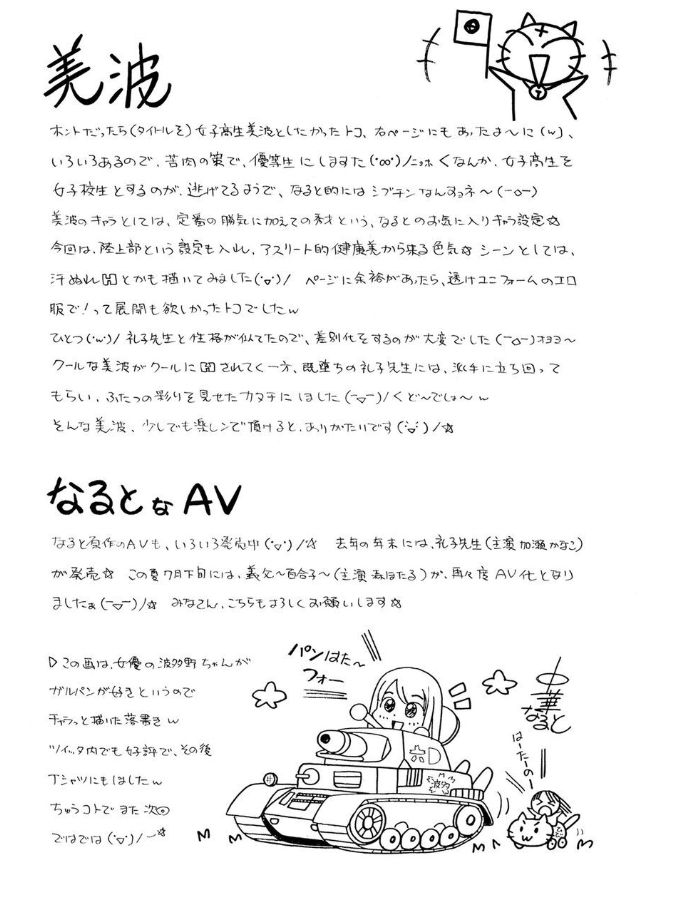 美波
ホントだったら(タイトルを)女子高生美波としたかったトコ、右ページにもあったよーに(w)、
いろいろあるので、苦肉の策で、優等生にしますた(°∞°)/ニッホ くなんか、女子高生を
女子校生とするのが、逃げてるようで、なると的にはシブチンなんすョネ〜(ーoー)
美波のキャラとしては、定番の勝気に加えての秀才という、なるとのお気に入りキャラ設定☆
今回は、陸上部という設定も入れ、アスリート的健康美から来る色気☆ シーンとしては、
汗ぬれHとかも描いてみました(°▽°)/ ページに余裕があったら、透けユニフォームのエロ
服で!って展開も欲しかったトコでしたw
ひとつ(°w°)/ 礼子先生と性格が似てたので、差別化をするのが大変でした(ー○ー)オヨヨ〜
クールな美波がクールに開されてく一方、既堕ちの礼子先生には、派手に立ち回って
もらい、ふたつの彩りを見せたカタチにしました(ー▽ー)/くど〜でしょ〜w
そんな美波、少しでも楽しンで頂けると、ありがたいです(°▽°)/☆
なるとなAV
なると原作のAVも、いろいろ発売中(°▽°)/☆ 去年の年末には、礼子先生(主演 加瀬かなこ)
が発売☆ この夏7月下旬には、義父〜百合子〜(主演 ほたる)が、再々度AV化となり
ましたぁ(ー▽ー)/☆ みなさん、こちらもよろしくお願いします☆
▷この画は、女優の波多野ちゃんが
ガルパンが好きというので
チャラっと描いた落書きw
ツイッタ内でも好評で、その後
Tシャツにもしましたw
ちゅうコトでまた次回
ではでは(°▽°)/ー☆
パンはた〜
フォー
波多
中華
なると
はーたーのー